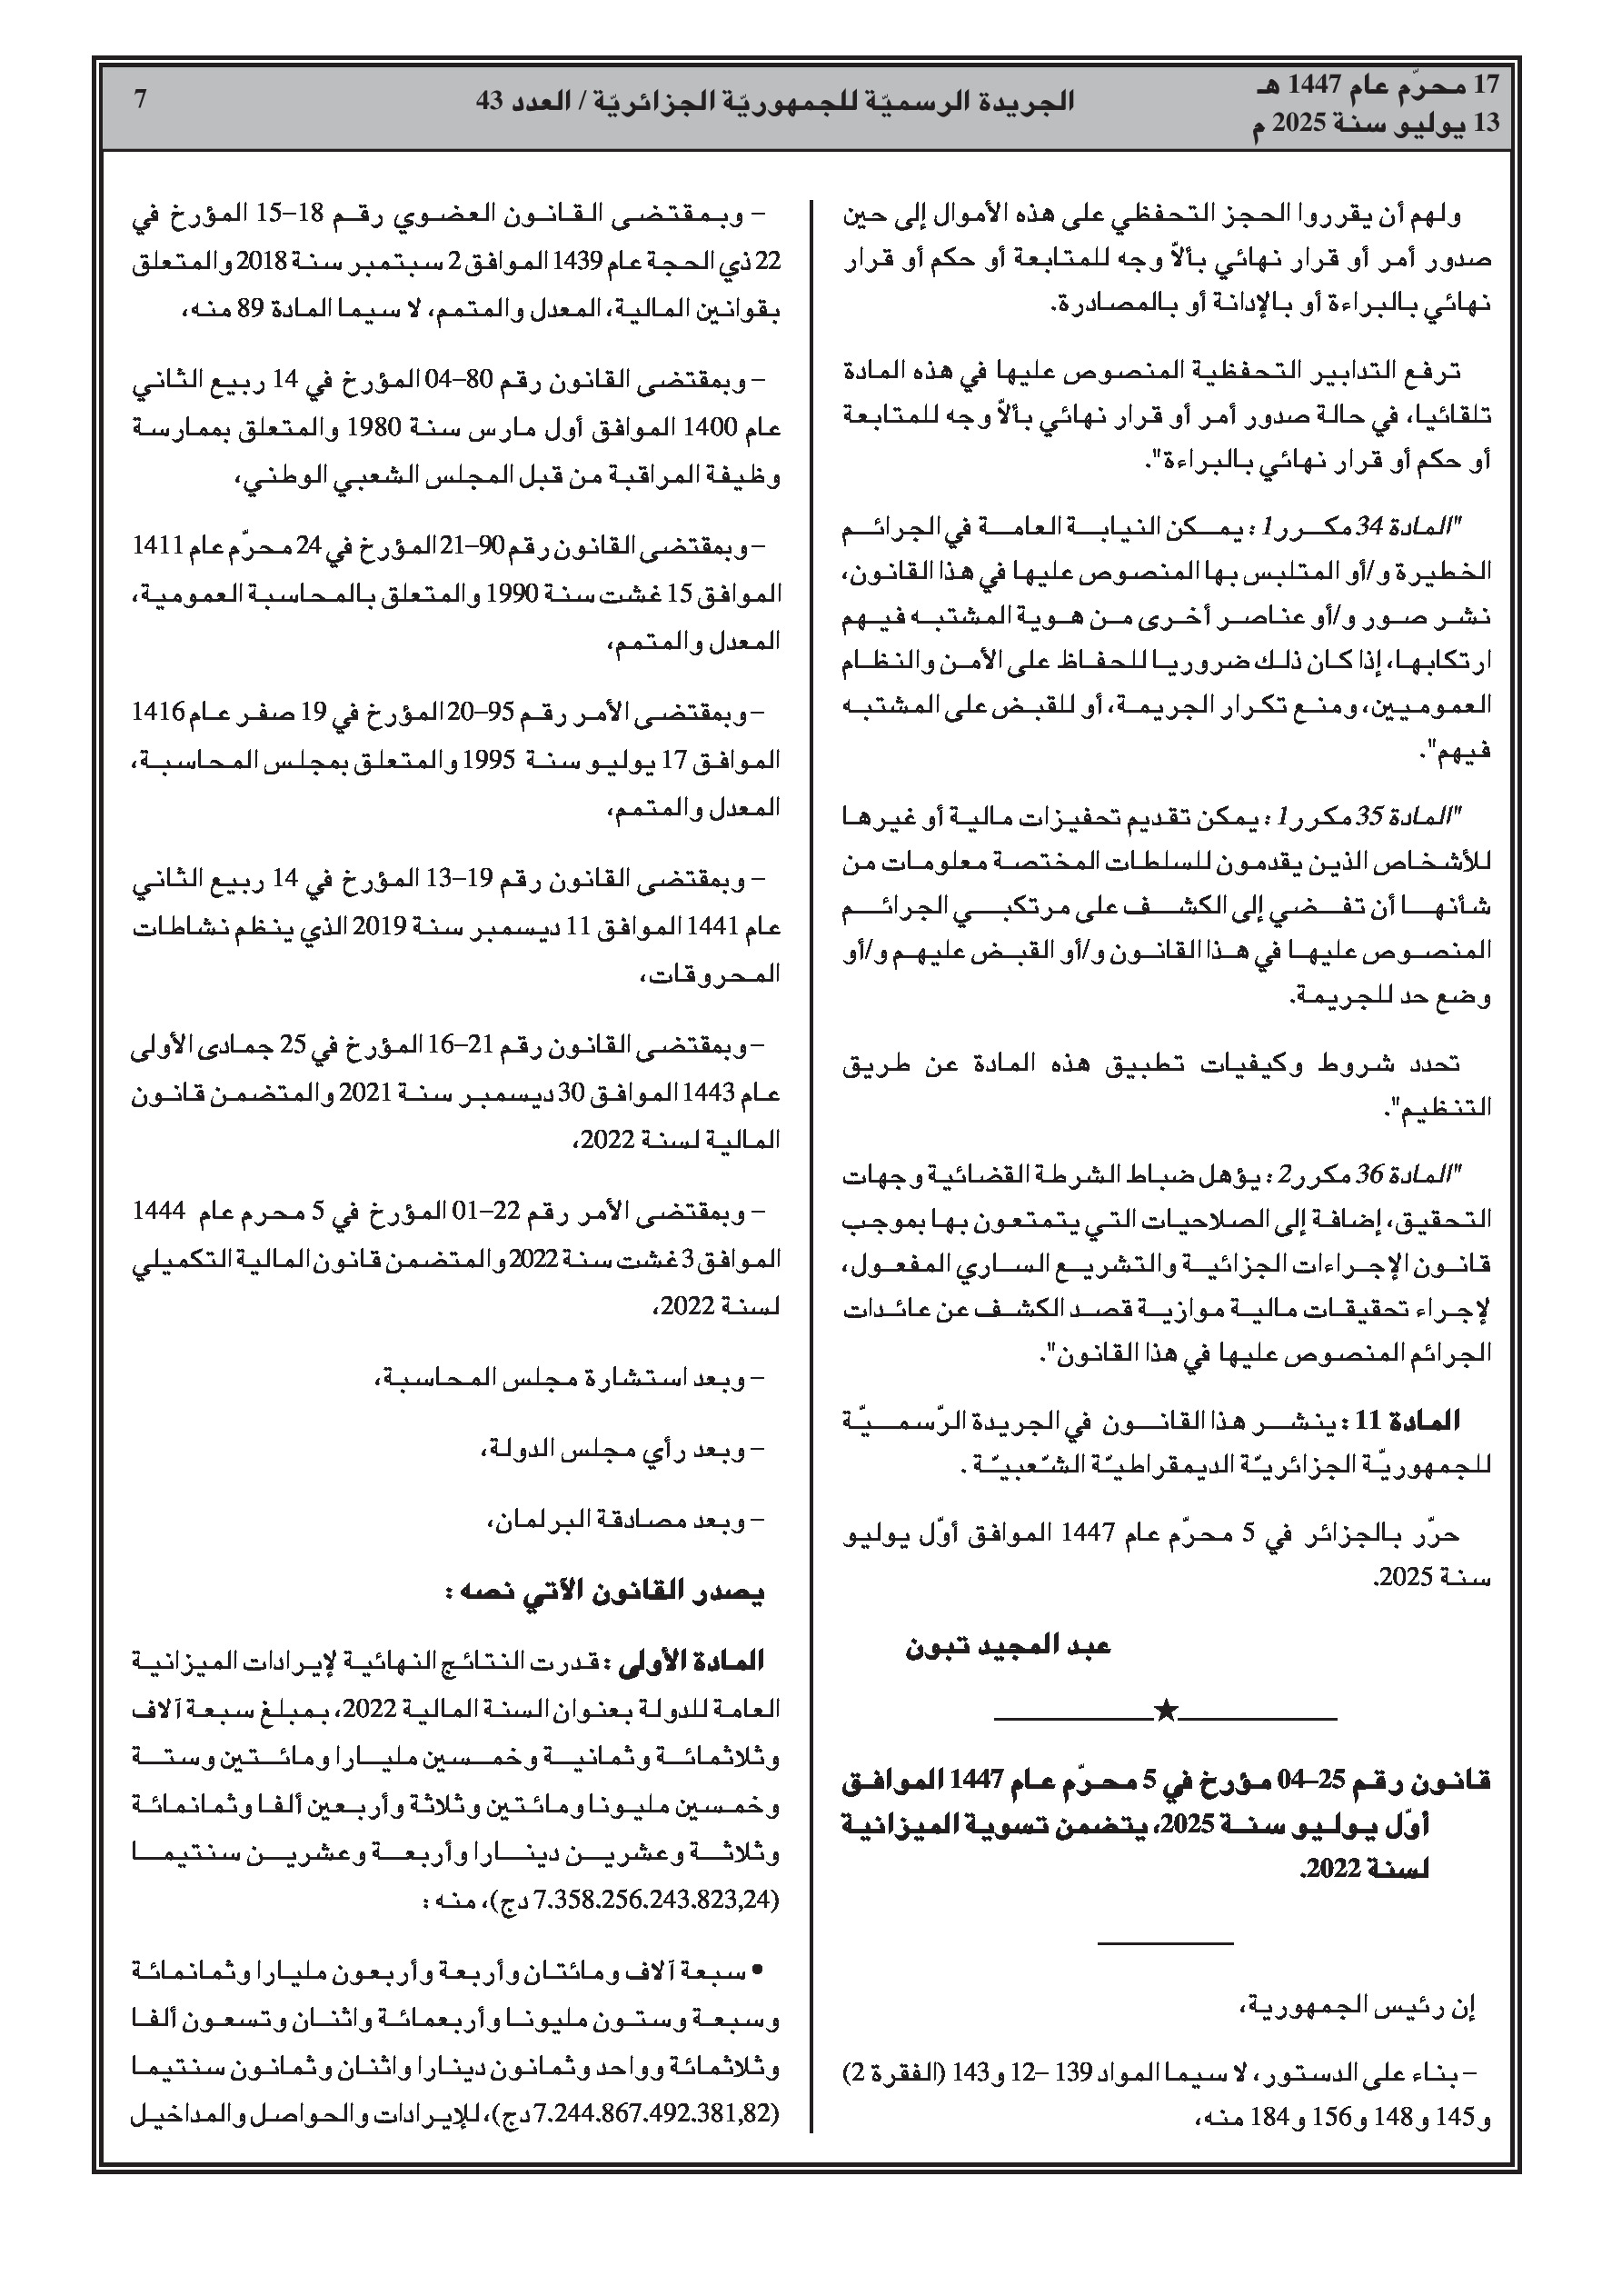 17 محرّم عام 1447 هـ
13 يوليو سنة 2025 م
الجريدة الرسميّة للجمهوريّة الجزائريّة / العدد 43
7
ولهم أن يقرروا الحجز التحفظي على هذه الأموال إلى حين
صدور أمر أو قرار نهائي بألاّ وجه للمتابعة أو حكم أو قرار
نهائي بالبراءة أو بالإدانة أو بالمصادرة.
ترفع التدابير التحفظية المنصوص عليها في هذه المادة
تلقائيا، في حالة صدور أمر أو قرار نهائي بألاّ وجه للمتابعة
أو حكم أو قرار نهائي بالبراءة".
"المادة 34 مكرر1 : يمكن النيابة العامة في الجرائم
الخطيرة و/أو المتلبس بها المنصوص عليها في هذا القانون،
نشر صور و/أو عناصر أخرى من هوية المشتبه فيهم
ارتكابها، إذا كان ذلك ضروريا للحفاظ على الأمن والنظام
العموميين، ومنع تكرار الجريمة، أو للقبض على المشتبه
فيهم".
"المادة 35 مكرر1 : يمكن تقديم تحفيزات مالية أو غيرها
للأشخاص الذين يقدمون للسلطات المختصة معلومات من
شأنها أن تفضي إلى الكشف على مرتكبي الجرائم
المنصوص عليها في هذا القانون و/أو القبض عليهم و/أو
وضع حد للجريمة.
تحدد شروط وكيفيات تطبيق هذه المادة عن طريق
التنظيم".
"المادة 36 مكرر2 : يؤهل ضباط الشرطة القضائية وجهات
التحقيق، إضافة إلى الصلاحيات التي يتمتعون بها بموجب
قانون الإجراءات الجزائية والتشريع الساري المفعول،
لإجراء تحقيقات مالية موازية قصد الكشف عن عائدات
الجرائم المنصوص عليها في هذا القانون".
المادة 11 : ينشر هذا القانون في الجريدة الرّسميّة
للجمهوريّة الجزائريّة الديمقراطيّة الشّعبيّة .
حرّر بالجزائر في 5 محرّم عام 1447 الموافق أوّل يوليو
سنة 2025.
عبد المجيد تبون
قانون رقم 25–04 مؤرخ في 5 محرّم عام 1447 الموافق
أوّل يوليو سنة 2025، يتضمن تسوية الميزانية
لسنة 2022.
إن رئيس الجمهورية،
– بناء على الدستور، لا سيما المواد 139 –12 و143 (الفقرة 2)
و145 و148 و156 و184 منه،
– وبمقتضى القانون العضوي رقم 18–15 المؤرخ في
22 ذي الحجة عام 1439 الموافق 2 سبتمبر سنة 2018 والمتعلق
بقوانين المالية، المعدل والمتمم، لا سيما المادة 89 منه،
– وبمقتضى القانون رقم 80–04 المؤرخ في 14 ربيع الثاني
عام 1400 الموافق أول مارس سنة 1980 والمتعلق بممارسة
وظيفة المراقبة من قبل المجلس الشعبي الوطني،
– وبمقتضى القانون رقم 90–21 المؤرخ في 24 محرّم عام 1411
الموافق 15 غشت سنة 1990 والمتعلق بالمحاسبة العمومية،
المعدل والمتمم،
– وبمقتضى الأمر رقم 95–20 المؤرخ في 19 صفر عام 1416
الموافق 17 يوليو سنة 1995 والمتعلق بمجلس المحاسبة،
المعدل والمتمم،
– وبمقتضى القانون رقم 19–13 المؤرخ في 14 ربيع الثاني
عام 1441 الموافق 11 ديسمبر سنة 2019 الذي ينظم نشاطات
المحروقات،
– وبمقتضى القانون رقم 21–16 المؤرخ في 25 جمادى الأولى
عام 1443 الموافق 30 ديسمبر سنة 2021 والمتضمن قانون
المالية لسنة 2022،
– وبمقتضى الأمر رقم 22–01 المؤرخ في 5 محرم عام 1444
الموافق 3 غشت سنة 2022 والمتضمن قانون المالية التكميلي
لسنة 2022،
– وبعد استشارة مجلس المحاسبة،
– وبعد رأي مجلس الدولة،
– وبعد مصادقة البرلمان،
يصدر القانون الآتي نصه :
المادة الأولى : قدرت النتائج النهائية لإيرادات الميزانية
العامة للدولة بعنوان السنة المالية 2022، بمبلغ سبعة آلاف
وثلاثمائة وثمانية وخمسين مليارا ومائتين وستة
وخمسين مليونا ومائتين وثلاثة وأربعين ألفا وثمانمائة
وثلاثة وعشرين دينارا وأربعة وعشرين سنتيما
(7.358.256.243.823,24 دج)، منه :
• سبعة آلاف ومائتان وأربعة وأربعون مليارا وثمانمائة
وسبعة وستون مليونا وأربعمائة واثنان وتسعون ألفا
وثلاثمائة وواحد وثمانون دينارا واثنان وثمانون سنتيما
(7.244.867.492.381,82 دج)، للإيرادات والحواصل والمداخيل